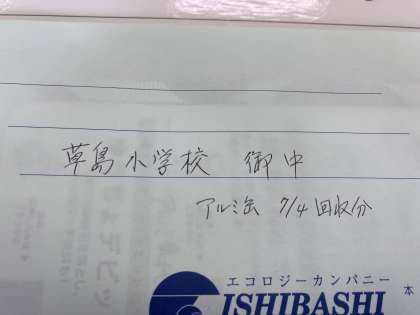 草島小学校 御中
アルミ缶 7/4回収分
エコロジーカンパニー
ISHIBASHI
本